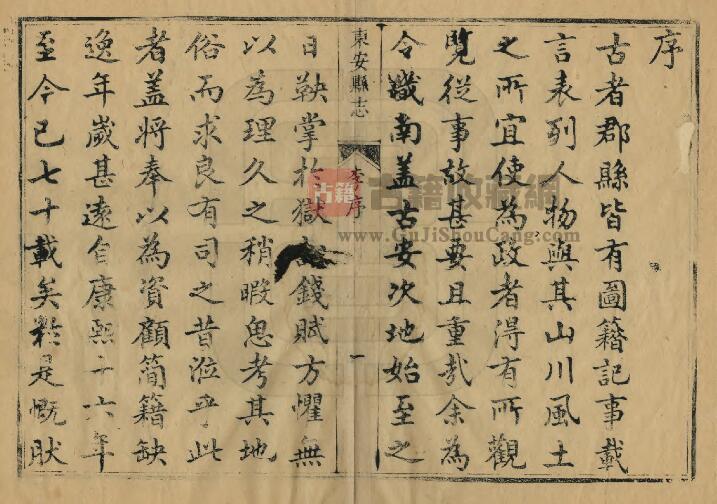 序
古者郡縣皆有圖籍記事載
言表列人物與其山川風土
之所宜使為政者得有所觀
覽從事故甚要且重哉余為
令畿南盖古安次地始至之
東安縣志
李序
一
日鞅掌於獄錢賦方懼無
以為理久之稍暇思考其地
俗而求良有司之昔涖乎此
者盖將奉以為資顧簡籍缺
逸年歲甚遠自康熙十六年
至今已七十載矣於是慨然
古籍
古籍收藏網
www.GuJiShouCang.com